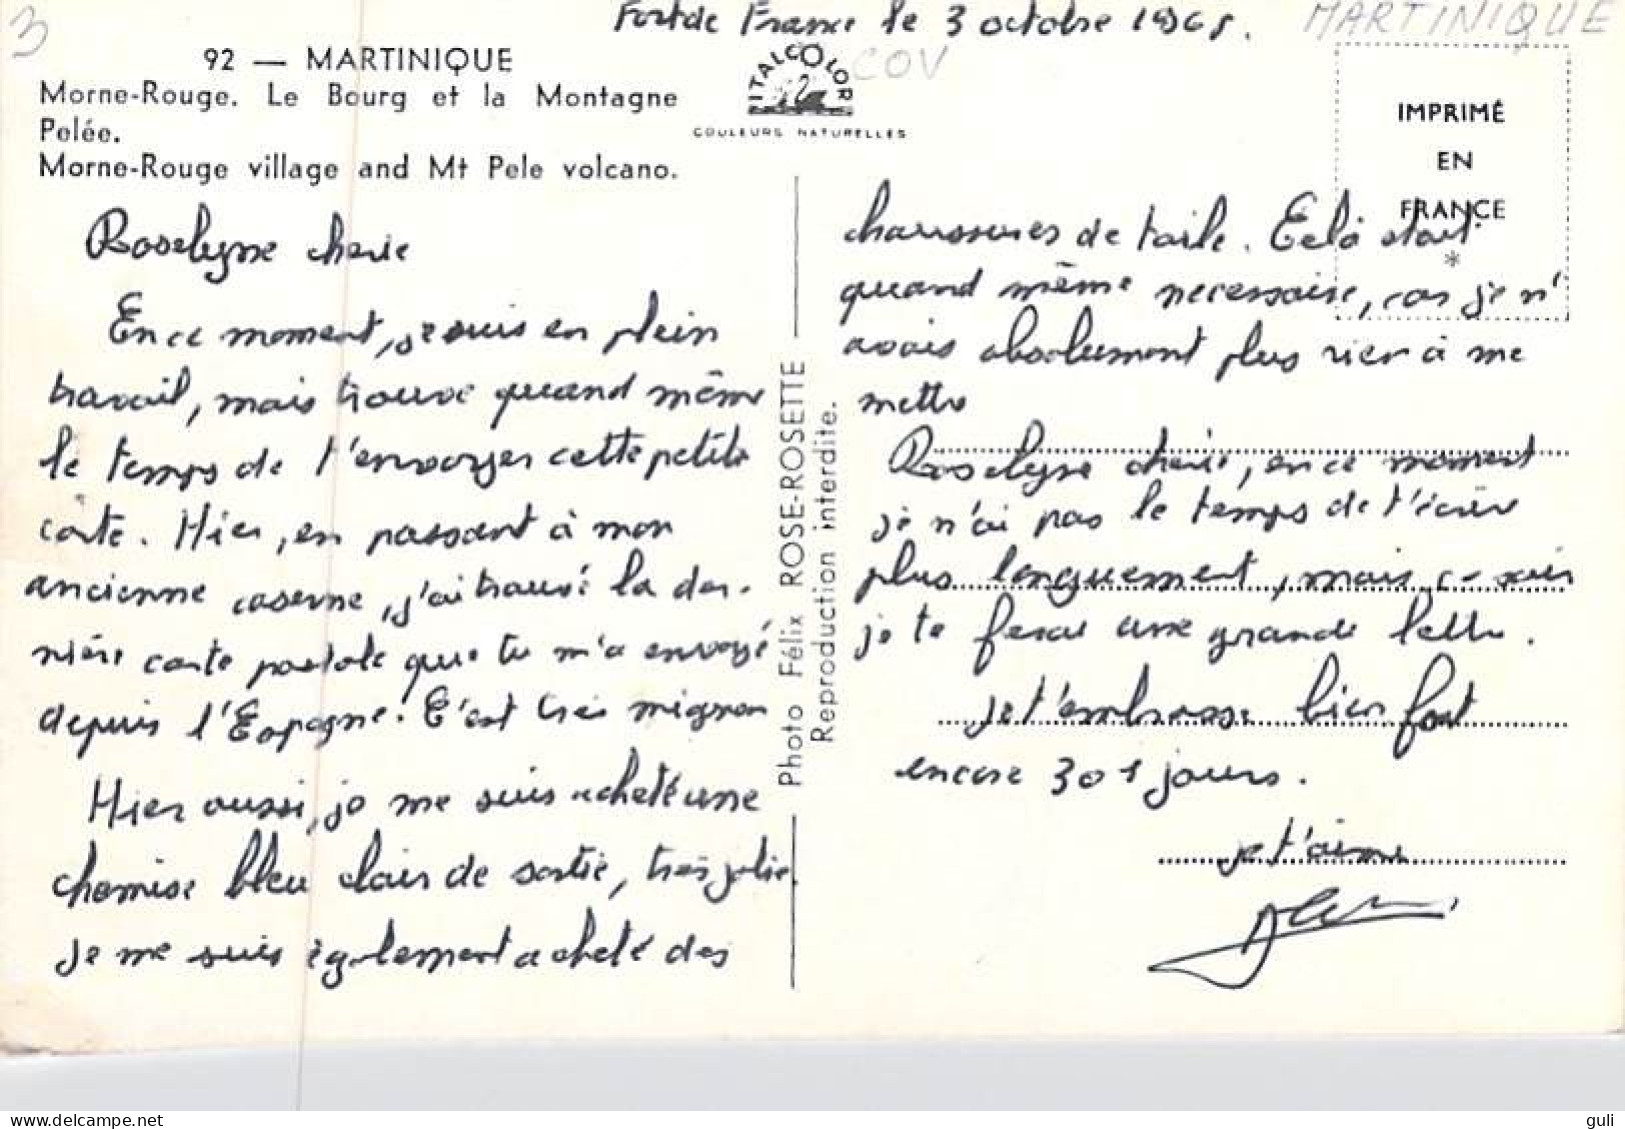 3
Fort de France le 3 octobre 1968.
MARTINIQUE
COV
92 — MARTINIQUE
Morne-Rouge. Le Bourg et la Montagne
Pelée.
Morne-Rouge village and Mt Pele volcano.
ITALCOLOR
COULEURS NATURELLES
IMPRIMÉ
EN
FRANCE
*
Roselyne cherie
En ce moment, je suis en plein
travail, mais trouve quand même
le temps de t'envoyer cette petite
carte. Hier, en passant à mon
ancienne caserne, j'ai trouvé la der-
nière carte postale que tu m'a envoyé
depuis l'Espagne. C'est très mignon
Hier aussi, je me suis acheté une
chemise bleu clair de sortie, très jolie.
je me suis également acheté des
Photo Félix ROSE-ROSETTE
Reproduction interdite.
chaussures de toile. Celà était
quand même necessaire, car je n'
avais absolument plus rien à me
mettre
Roselyne cherie, en ce moment
je n'ai pas le temps de t'écrire
plus longuement, mais ce soir
je te ferai une grande lettre.
je t'embrasse bien fort
encore 301 jours.
je t'aime
guli
www.delcampe.net